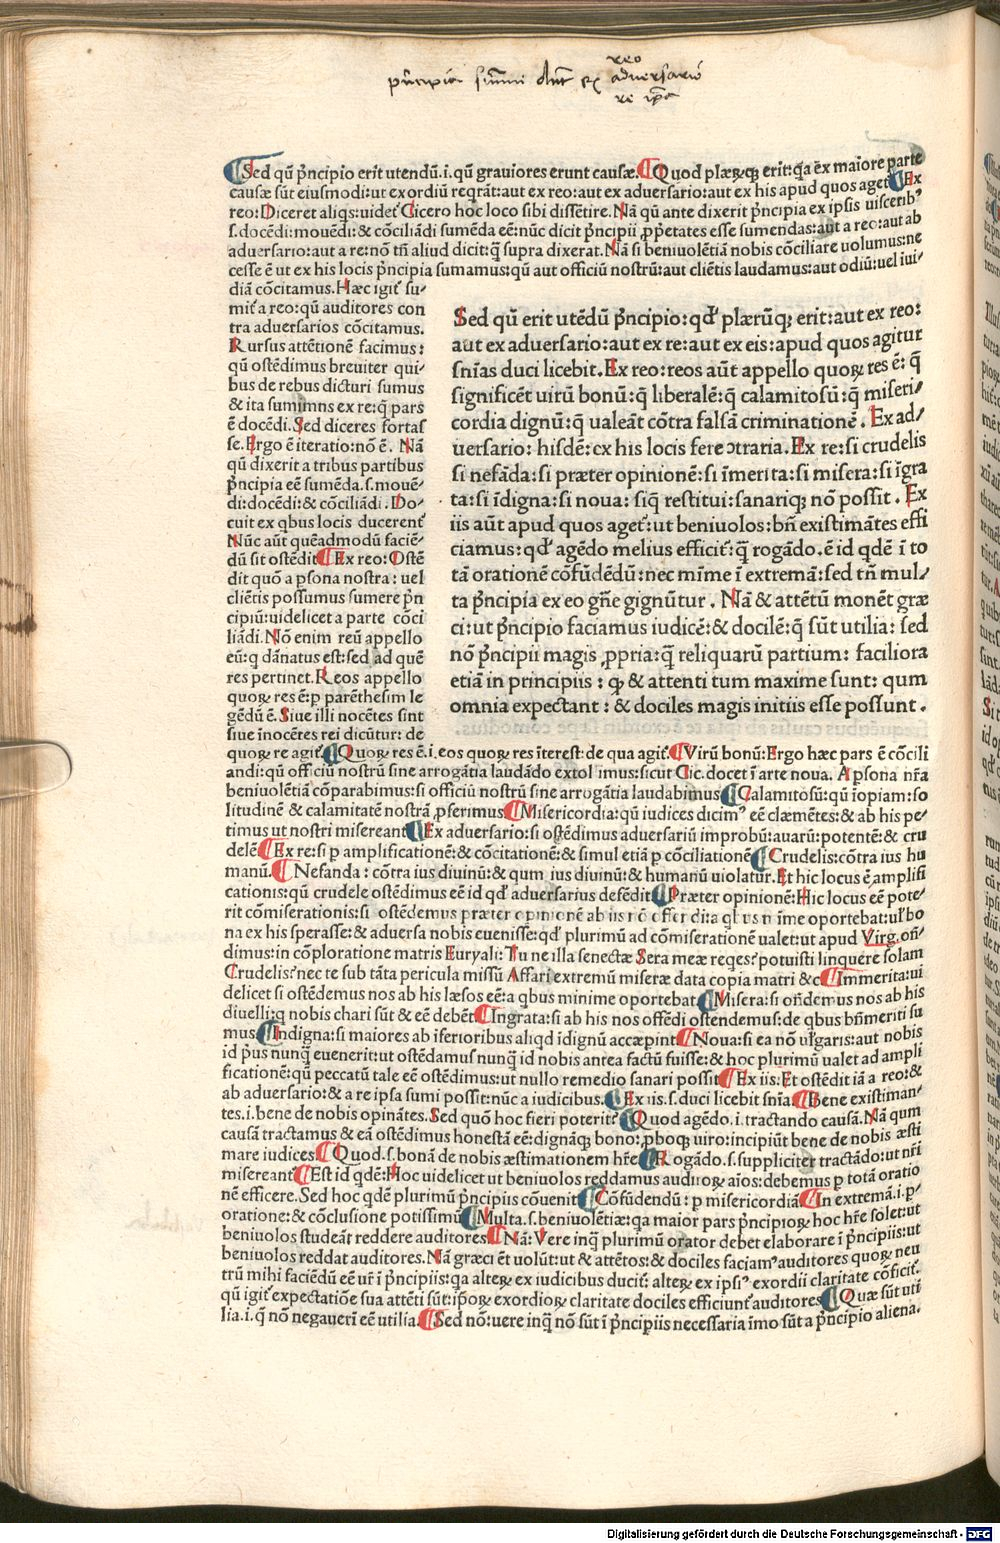 reo
principia summi debent ex adversario
re ipsa
¶Sed qū p̄ncipio erit utendū.i.qū grauiores erunt causæ.¶Quod plærꝫqꝫ erit:q̄a ex maiore parte
causæ sūt eiusmodi:ut exordiū reqrāt:aut ex reo:aut ex aduersario:aut ex his apud quos aget¶Ex
reo:Diceret aliqs:uidet̉ Cicero hoc loco sibi dissētire.Nā qū ante dixerit p̄ncipia ex ipsis uiscerib⁹
s.docēdi:mouēdi:& cōciliādi sumēda eē:nūc dicit p̄ncipii ꝓp̄etates esse sumendas:aut a reo:aut ab
aduersario:aut a re:nō tñ aliud dicit:q̄ supra dixerat.Nā si beniuolētiā nobis cōciliare uolumus:ne
cesse ē ut ex his locis p̄ncipia sumamus:qū aut officiū nostrū:aut cliētis laudamus:aut odiū:uel iui/
diā cōcitamus.Hæc igit̉ su/
mit̉ a reo:qū auditores con
tra aduersarios cōcitamus.
Rursus attētionē facimus:
qū ostēdimus breuiter qui/
bus de rebus dicturi sumus
& ita sumimns ex re:q̄ pars
ē docēdi.Sed diceres fortas
se.Ergo ē iteratio:nō ē. Nā
qū dixerit a tribus partibus
p̄ncipia eē sumēda.s.mouē/
di:docēdi:& cōciliādi.Do/
cuit ex qbus locis ducerent̉
Nūc aūt quēadmodū faciē/
dū sit ostēdit¶Ex reo:Ostē
dit quō a psona nostra: uel
cliētis possumus sumere p̄n
cipiū:uidelicet a parte cōci
liādi.Nō enim reū appello
eū:q dānatus est:sed ad quē
res pertinet.Reos appello
quoꝝ res ē:p parēthesim le
gēdū ē.Siue illi nocētes sint
siue inocēres rei dicūtur: de
quoꝝ re agit̉.¶Quoꝝ res ē.i.eos quoꝝ res īterest:de qua agit̉.¶Virū bonū:Ergo hæc pars ē cōcili
andi:qū officiū nostrū sine arrogātia laudādo extollimus:sicut Cic.docet ī arte noua. A psona nr̄a
beniuolētiā cōparabimus:si officiū nostrū sine arrogātia laudabimus¶Calamitosū:qū īopiam:so
litudinē & calamitatē nostrā ꝓserimus¶Misericordia:qū iudices dicim⁹ eē clæmētes:& ab his pe/
timus ut nostri misereant̉¶Ex aduersario:si ostēdimus aduersariū improbū:auarū:potentē:& cru
delē¶Ex re:si p amplificationē:& cōcitationē:& simul etiā p cōciliationē¶Crudelis:cōtra ius hu
manū.¶Nefanda: cōtra ius diuinū:& qum ius diuinū:& humanū uiolatur.Et hic locus ē amplifi
cationis:qū crudele ostēdimus eē id qd̉ aduersarius defēdit¶Præter opinionē:Hic locus eē pote/
rit cōmiserationis:si ostēdemus præter opinionē ab iis rē offerdita qbus minīme oportebat:ul̉ bo
na ex his sperasse:& aduersa nobis euenisse:qd̉ plurimū ad cōmiserationē ualet:ut apud Virg.oñ/
dimus:in cōploratione matris Euryali: Tu ne illa senectæ Sera meæ reqes?potuisti linquere solam
Crudelis?nec te sub tāta pericula missū Affari extremū miseræ data copia matri &c¶Immerita:ui
delicet si ostēdemus nos ab his læsos eē:a qbus minime oportebat¶Misera:si oñdemus nos ab his
diuelli:q nobis chari sūt & eē debēt¶Ingrata:si ab his nos offēdi ostendemus:de qbus bñmeriti su
mus¶Indigna:si maiores ab iferioribus aliqd idignū accæpint¶Noua:si ea nō ul̉garis:aut nobis
id p̄us nunq̄ euenerit:ut ostēdamus nunq̄ id nobis antea factū fuisse:& hoc plurimū ualet ad ampli
ficationē:qū peccatū tale eē ostēdimus:ut nullo remedio sanari possit¶Ex iis.Et ostēdit iā a reo:&
ab aduersario:& a re ipsa sumi possit:nūc a iudicibus.¶Ex iis.s.duci licebit sñia.¶Bene existiman/
tes.i.bene de nobis opinātes.Sed quō hoc fieri poterit?¶Quod agēdo.i.tractando causā.Nā qum
causā tractamus & eā ostēdimus honestā eē:dignāqꝫ bono:ꝓboqꝫ uiro:incipiūt bene de nobis æsti
mare iudices¶Quod.s.bonā de nobis æstimationem hr̄e¶Rogādo.s.suppliciter tractādo:ut nr̄i
misereant̉¶Est id qdē:Hoc uidelicet ut beniuolos reddamus auditoꝝ aīos:debemus p totā oratio
nē efficere.Sed hoc qdē plurimū p̄ncipiis cōuenit¶Cōfūdendū: p misericordiā¶In extremā.i.p̉
oratione:& cōclusione potissimū¶Multa.s.beniuolētiæ:qa maior pars p̄ncipioꝝ hoc hr̄e solet:ut
beniuolos studeāt reddere auditores¶Nā:Vere inq̄ plurimū orator debet elaborare ī p̄ncipiis:ut
beniuolos reddat auditores.Nā græci ēt uolūt:ut & attētos:& dociles faciam⁹ auditores quoꝝ neu
trū mihi faciēdū eē ur̄ ī p̄ncipiis:qa alteꝝ ex iudicibus ducit̉: alteꝝ ex ipsi⁹ exordii claritate cōficit̉.
qū igit̉ expectatiōe sua attēti sūt:ipōꝝ exordioꝝ claritate dociles efficiunt̉ auditores¶Quæ sūt uti
lia.i.q̄ nō negauerī eē utilia.¶Sed nō:uere inq̄ nō sūt ī p̄ncipiis necessaria īmo sūt a p̄ncipio aliena.
Sed qū erit utēdū p̄ncipio:qd̉ plærūqꝫ erit:aut ex reo:
aut ex aduersario:aut ex re:aut ex eis:apud quos agitur
sñias duci licebit.Ex reo:reos aūt appello quoꝝ res ē: q̄
significēt uirū bonū:q̄ liberalē:q̄ calamitosū:q̄ miseri/
cordia dignū:q̄ ualeāt cōtra falsā criminationē. Ex ad/
uersario: hisdē:ex his locis fere ↄtraria.Ex re:si crudelis
si nefāda:si præter opinionē:si īmerita:si misera:si īgra
ta:si īdigna:si noua: siq̄ restitui:sanariqꝫ nō possit. Ex
iis aūt apud quos aget̉:ut beniuolos:bñ existimātes effi
ciamus:qd̉ agēdo melius efficit̉:q̄ rogādo.ē id qdē ī to
tā orationē cōfūdēdū:nec mīme ī extremā:sed tñ mul/
ta p̄ncipia ex eo gñe gignūtur. Nā & attētū monēt græ
ci:ut p̄ncipio faciamus iudicē:& docilē:q̄ sūt utilia: sed
nō p̄ncipii magis ꝓpria:q̄ reliquarū partium: faciliora
etiā in principiis: ꝙ & attenti tum maxime sunt: qum
omnia expectant: & dociles magis initiis esse possunt.
Digitalisierung gefördert durch die Deutsche Forschungsgemeinschaft - DFG